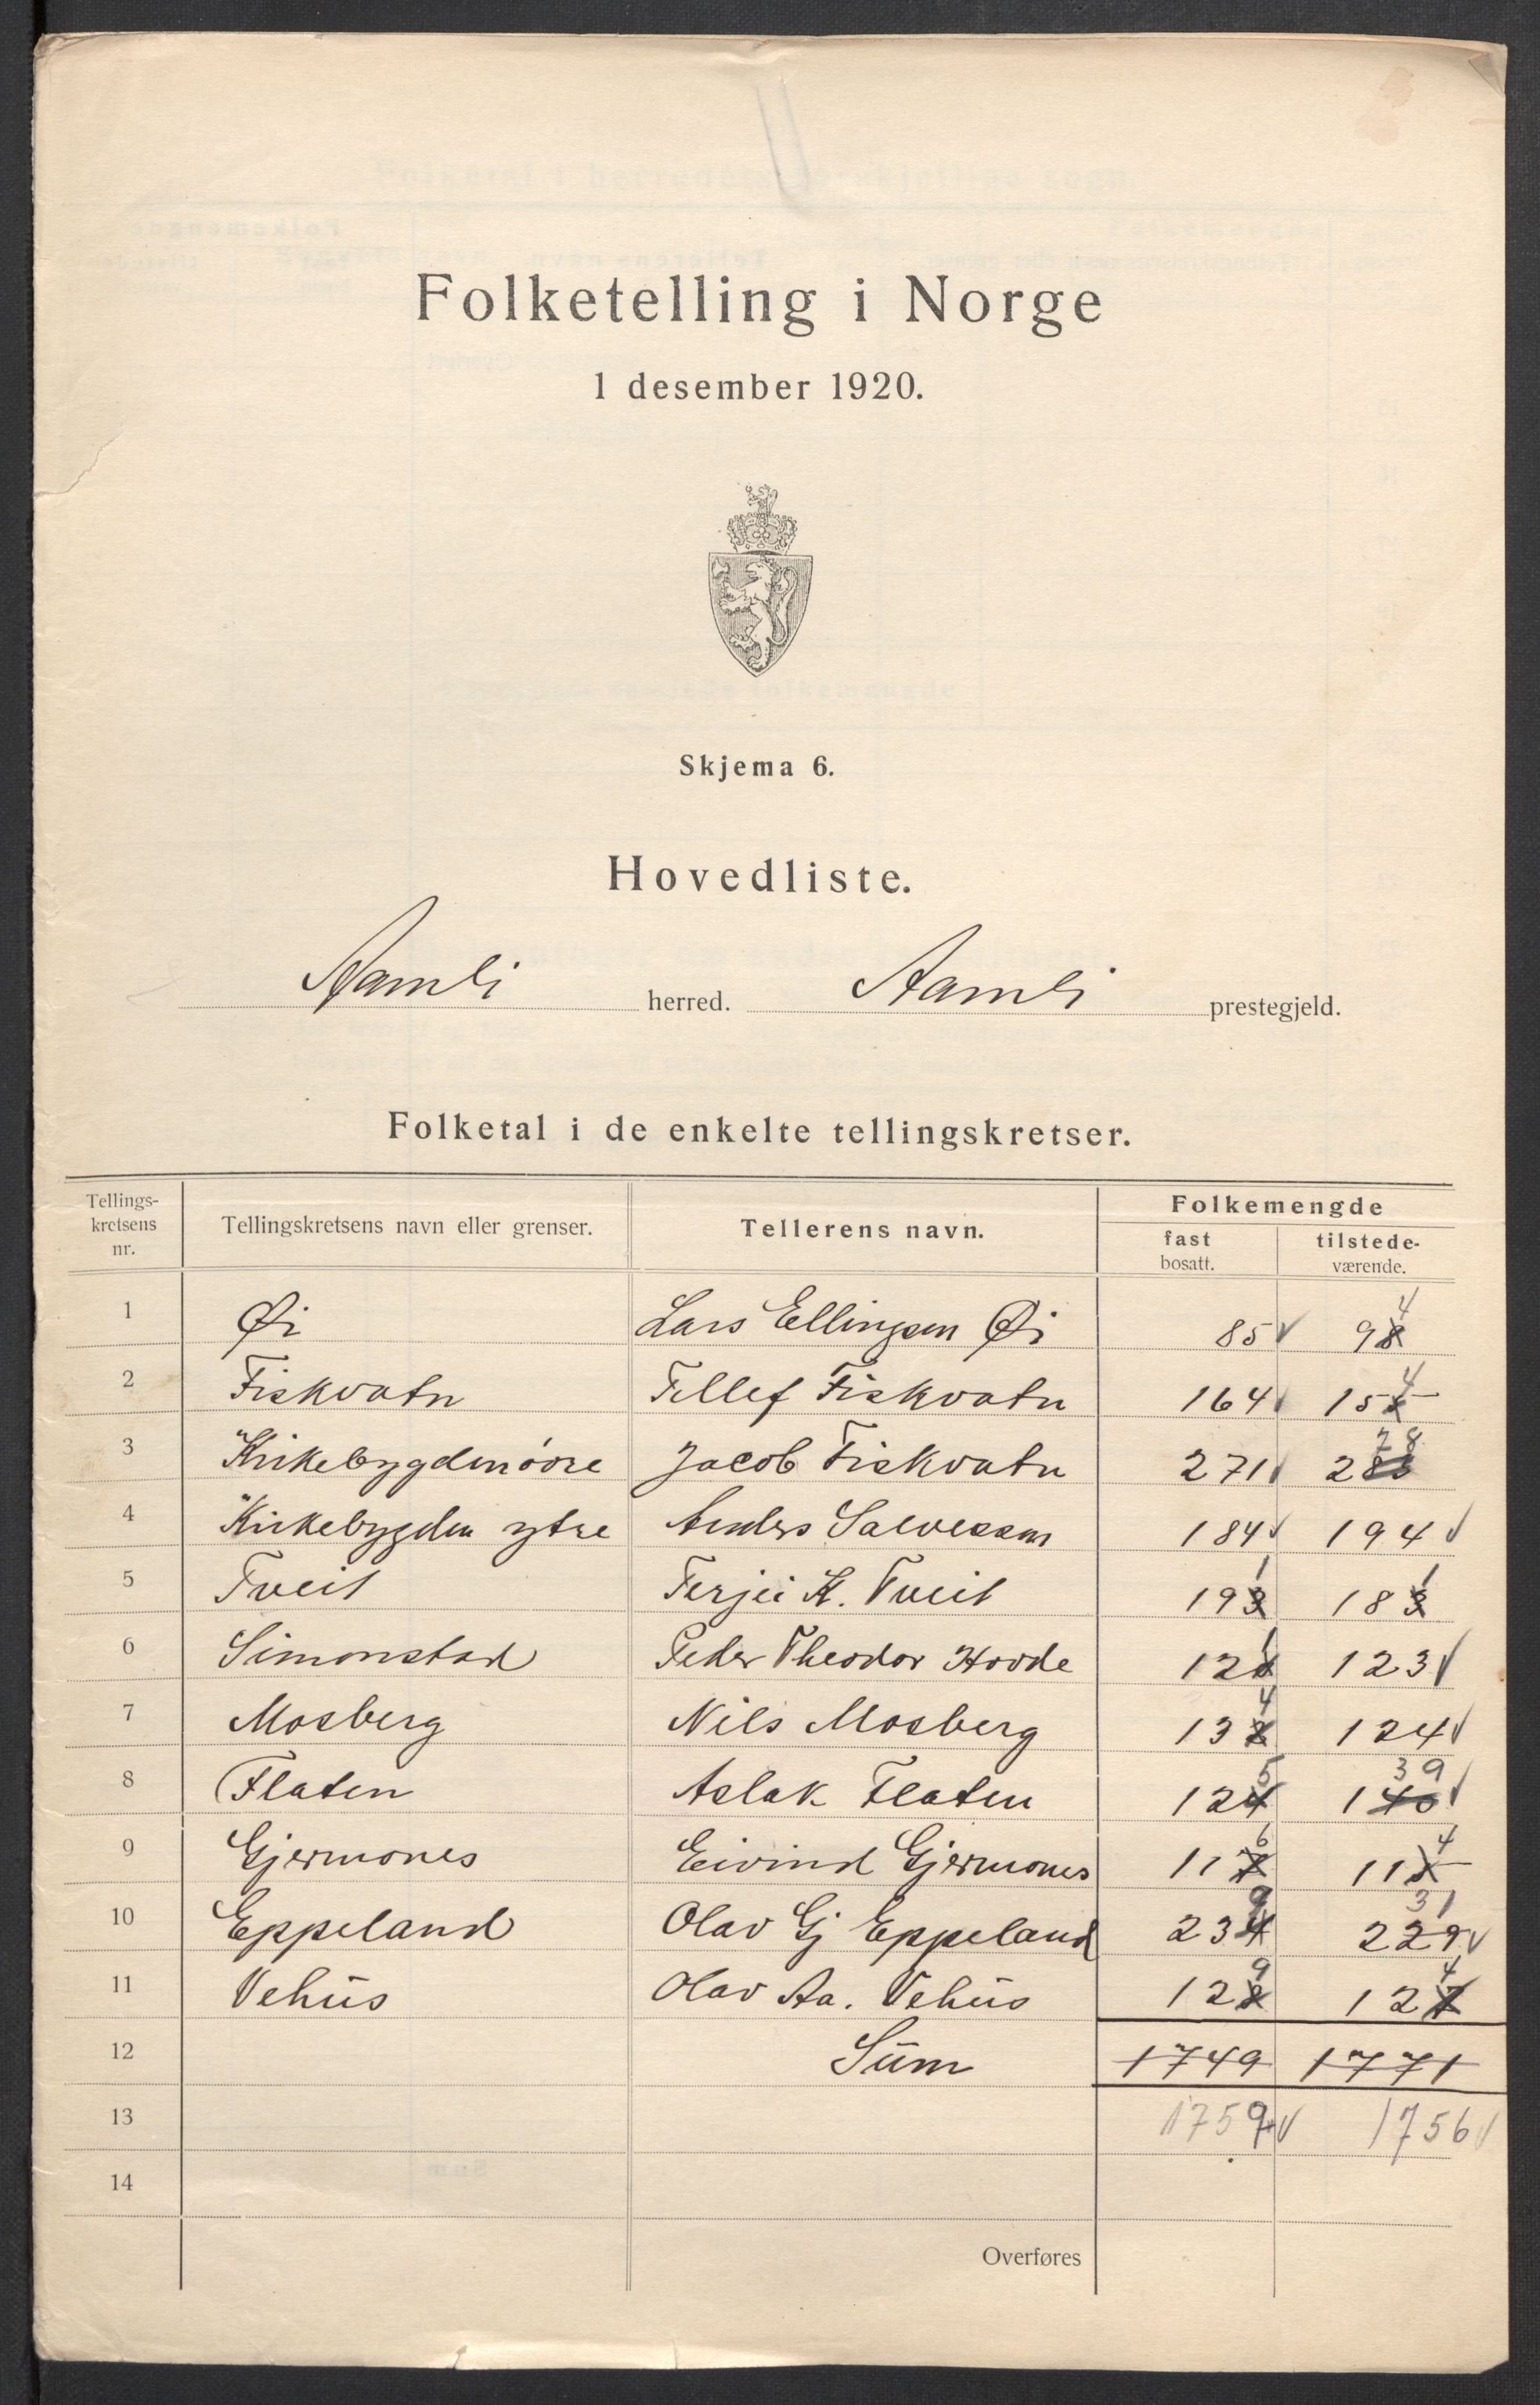 Folketelling i Norge
1 desember 1920.
Skjema 6.
Hovedliste.
Aamli herred. Aamli prestegjeld.
Folketal i de enkelte tellingskretser.
Tellings-
kretsens
nr.
Tellingskretsens navn eller grenser.
Tellerens navn.
Folkemengde
fast
bosatt.
tilstede-
værende.
1 Øi Lars Ellingsen Øi 85 94
2 Fiskvatn Tellef Fiskvatn 164 154
3 Kirkebygden øvre Jacob Fiskvatn 271 278
4 Kirkebygden ytre Anders Salvessen 184 194
5 Tveit Terjei K. Tveit 191 181
6 Simonstad Peder Theodor Hovde 121 123
7 Mosberg Nils Mosberg 134 124
8 Flaten Aslak Flaten 125 139
9 Gjermones Eivind Gjermones 116 114
10 Eppeland Olav Gj Eppeland 239 231
11 Vehus Olav Aa. Vehus 129 124
12 Sum 1749 1771
13 1759 1756
14
Overføres